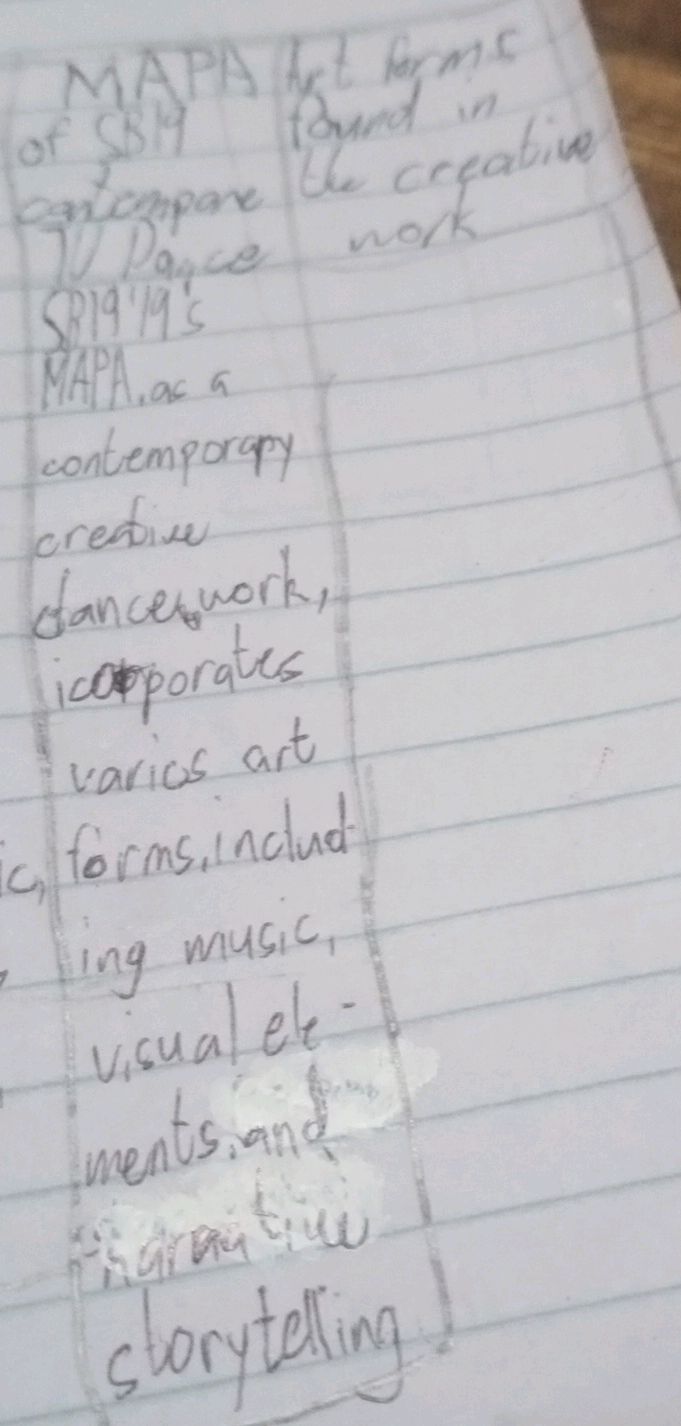 MAPA
of SB19
contempore
Dance
SB19'19's
MAPA, as a
contemporary
creative
dance work,
icorporates
varios art
forms, includ
ing music,
visual ele-
ments, and
narrative
storytelling
Art forms
found in
the creative
work
ic,